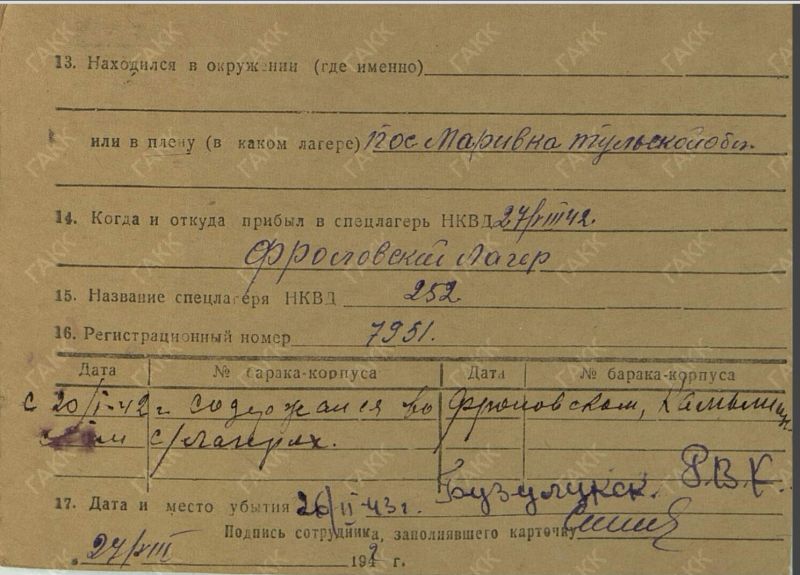 13. Находился в окружении (где именно)
или в плену (в каком лагере) пос Маривка тульской обл.
14. Когда и откуда прибыл в спецлагерь НКВД 27/VIII 42.
Фроловский лагер
15. Название спецлагеря НКВД 252.
16. Регистрационный номер 7951.
Дата № барака-корпуса Дата № барака-корпуса
с 20/I-42 г содержался во Фроловском, Камышин
с/лагерях.
Бузулукск. Р.В.К.
17. Дата и место убытия 26/II-43 г.
Подпись сотрудника, заполнявшего карточку
27/VIII 1942 г.
ГАКК